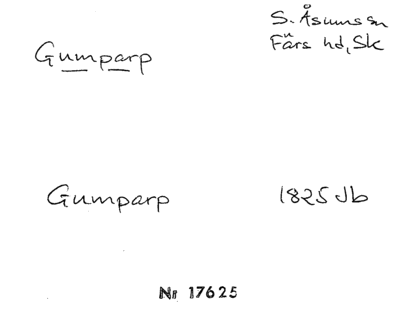 S. Åsums sn
Gumparp
Färs hd, Sk
Gumparp
1825 Jb
Nr 17625